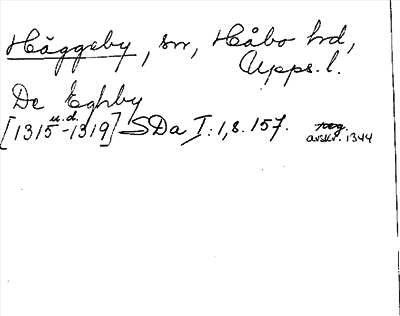 Häggeby, sn, Håbo hd,
Upps. l.
De Eghby
[1315 u.d. -1319] SDa I:1, s. 157. reg. avskr. 1344